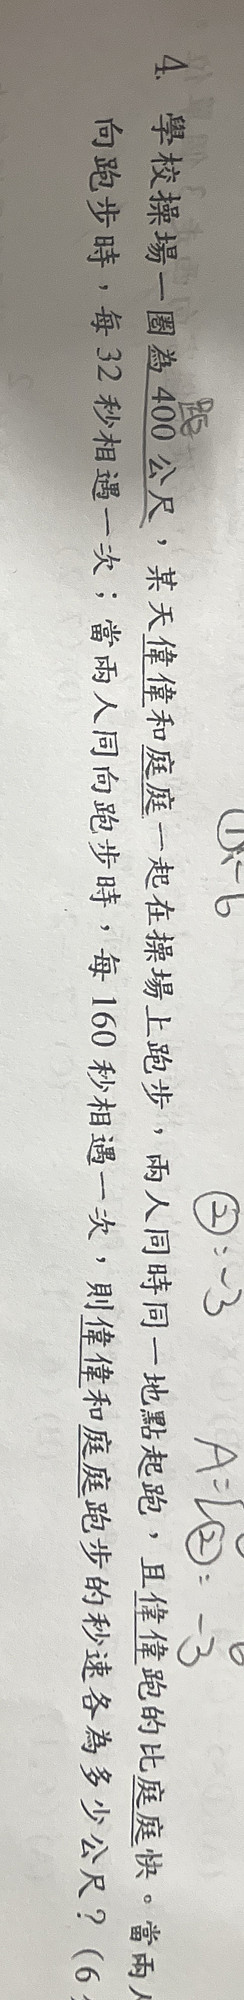 4. 學校操場一圈為400公尺，某天偉偉和庭庭一起在操場上跑步，兩人同時同一地點起跑，且偉偉跑的比庭庭快。當兩人
向跑步時，每32秒相遇一次；當兩人同向跑步時，每160秒相遇一次，則偉偉和庭庭跑步的秒速各為多少公尺？(6
距
②:-3
②: -3